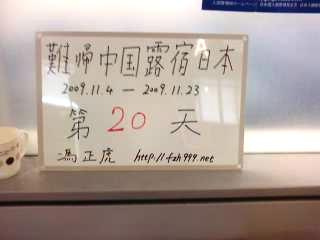 難帰中国露宿日本
2009.11.4 — 2009.11.23
第 20 天
馮正虎 http://fzh999.net